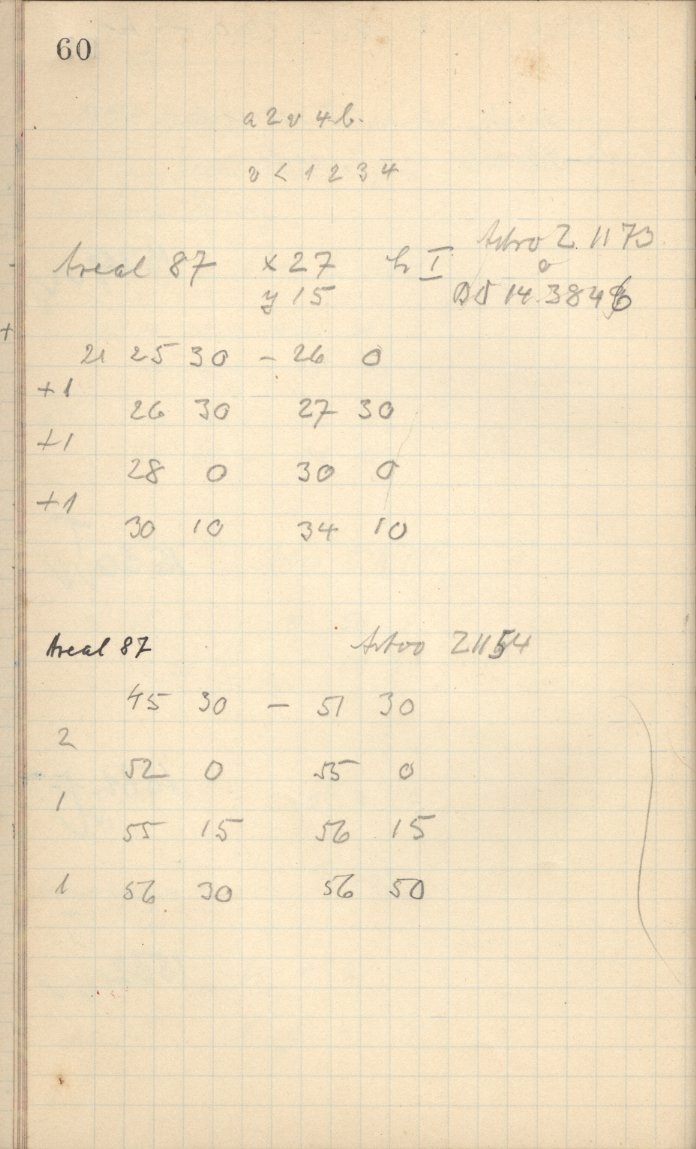 60
a 2 v 4 b.
v < 1 2 3 4
Areal 87 x 27 h I Astro Z 1173
y 15 BD 14 384
21 25 30 - 26 0
+1
26 30 27 30
+1
28 0 30 0
+1
30 10 34 10
Areal 87 Astro Z 1154
45 30 - 51 30
2
52 0 55 0
1
55 15 56 15
1 56 30 56 50